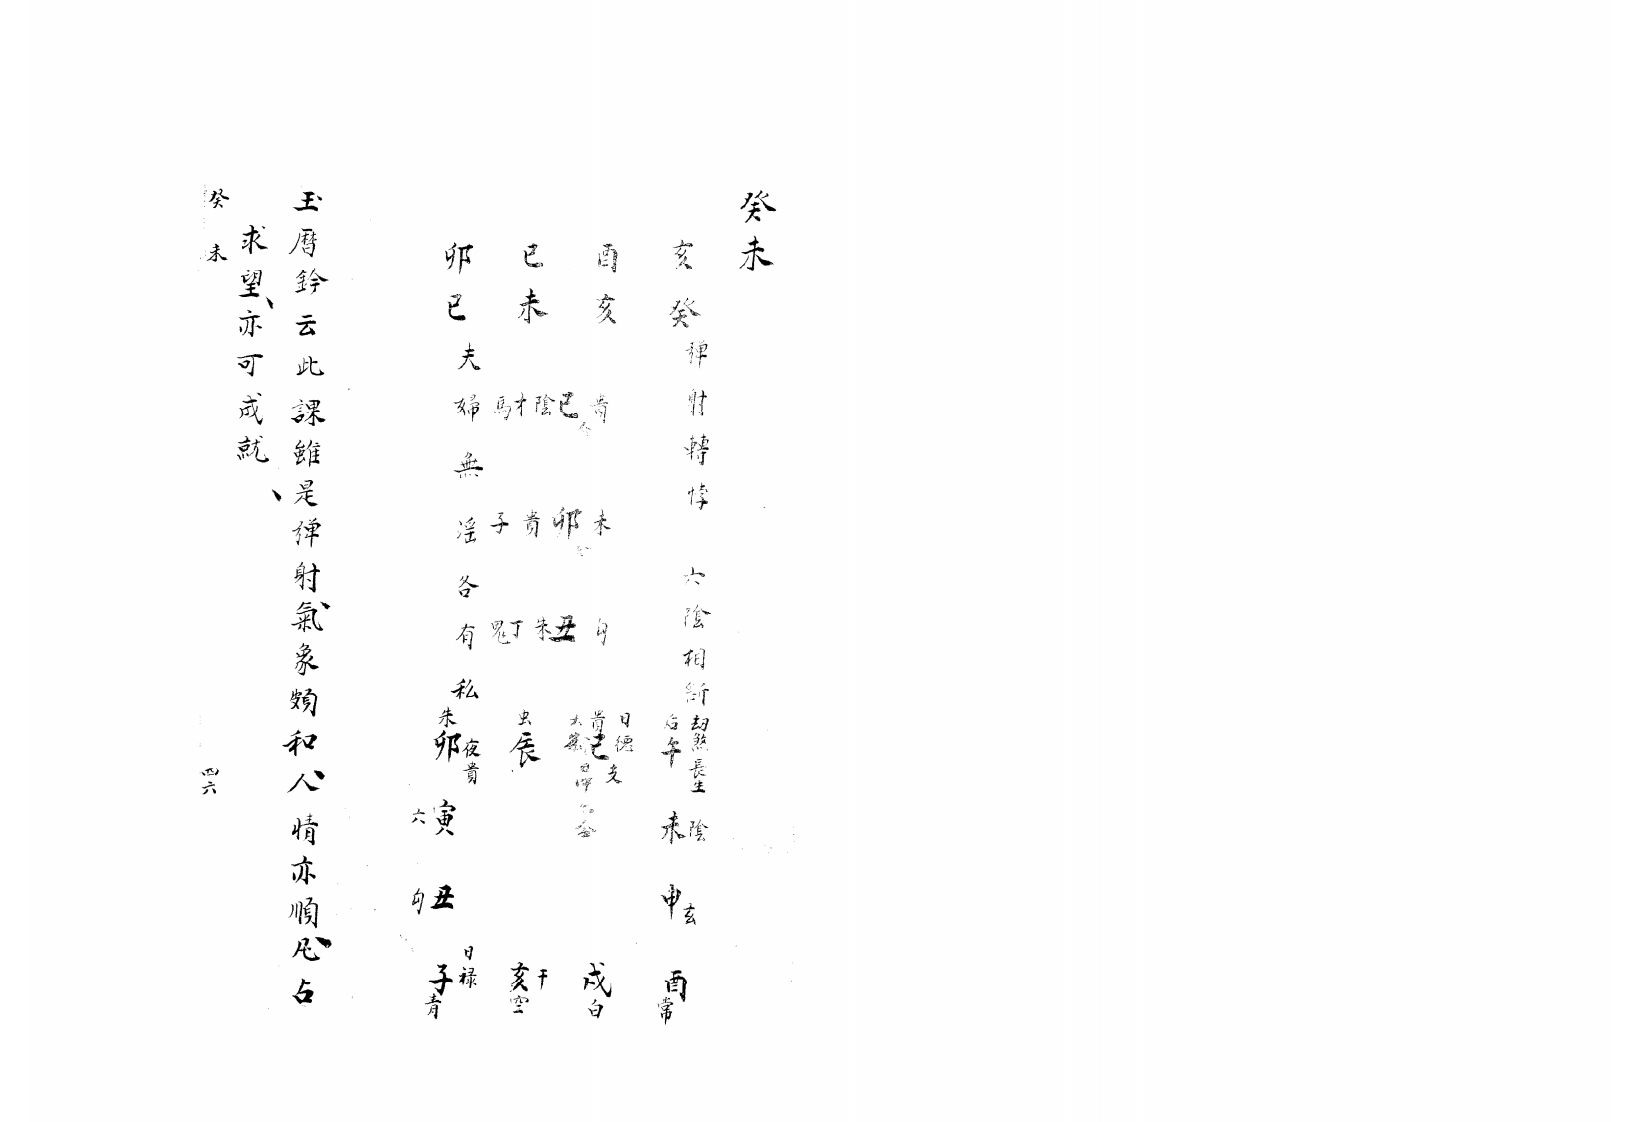 癸未
亥癸
彈射轉悖 六陰相斷
酉亥
巳未
卯巳
夫婦無淫各有私
貴巳陰才馬
未卯貴子
勾丑朱丁鬼
劫煞長生
后午
未陰
申玄
酉常
日德
貴巳支
戌白
虫辰
亥干
空
朱卯夜貴
寅六
丑勾
日祿
子青
玉曆鈐云此課雖是彈射氣象頗和人情亦順凡占
求望亦可成就
癸未
四六